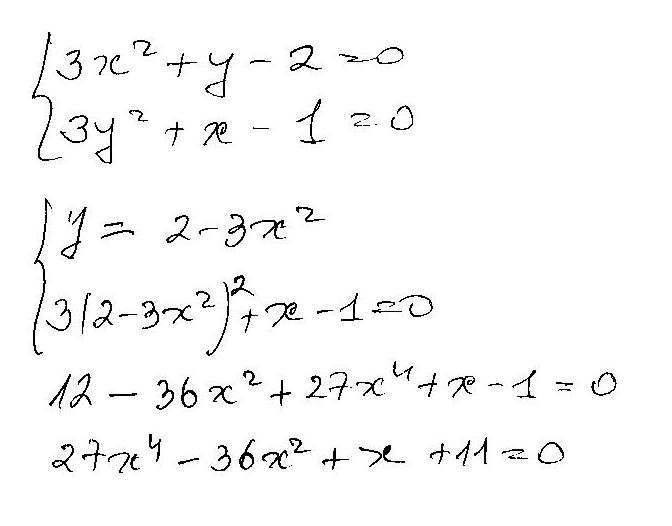 {3x² + y - 2 = 0
{3y² + x - 1 = 0
{y = 2 - 3x²
{3(2 - 3x²)² + x - 1 = 0
12 - 36x² + 27x⁴ + x - 1 = 0
27x⁴ - 36x² + x + 11 = 0